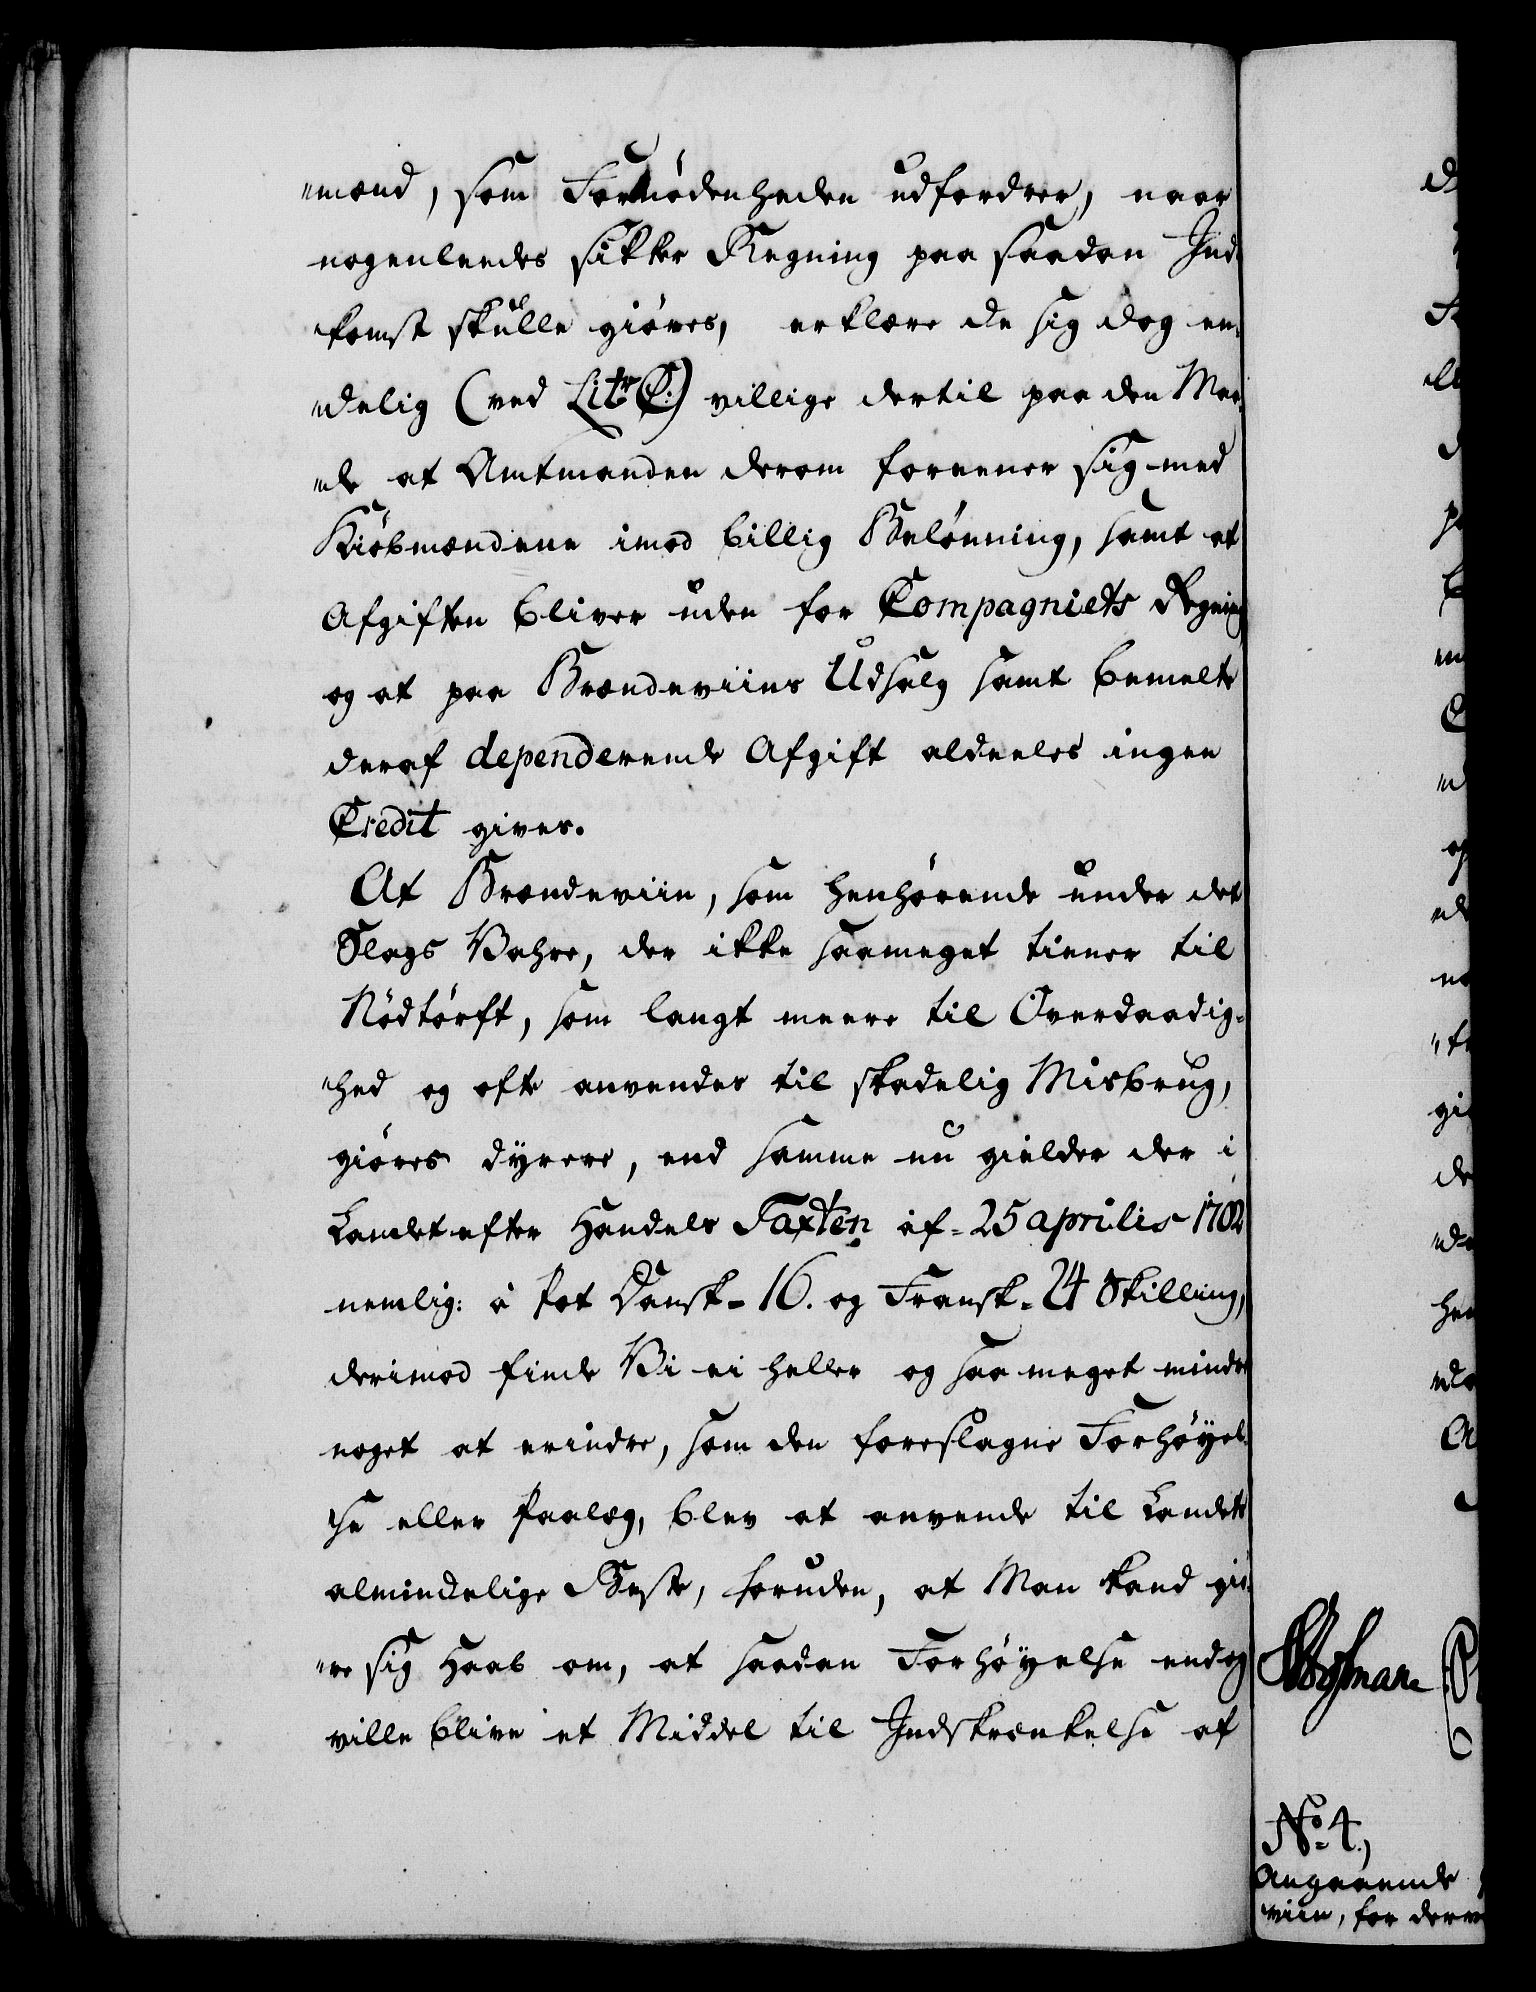 "mænd, som Fornødenheden udfordrer, naar
nogenleedes sikker Regning paa saadan Ind-
"komst skulle giøres, erklære de sig dog en-
"delig (ved Litr C:) villige dertil paa den Maa-
"de at Amtmanden derom foreener sig med
Kiøbmændene imod billig Belønning, samt at
Afgiften bliver uden for Compagniets Regning
og at paa Brændeviins Udsalg samt bemelte
deraf dependerende Afgift aldeeles ingen
Credit gives.
At Brændeviin, som henhørende under det
Slags Vahre, der ikke saameget tiener til
Nödtørft, som langt meere til Overdaadig-
"hed og ofte anvendes til skadelig Misbrug,
giøres dyrere, end samme nu gielder der i
Landet efter Handels Taxten af 25 aprilis 1702
nemlig: à Pot Dansk = 16. og Fransk = 24 Skilling,
derimod finde Vi ei heller og saa meget mindre
noget at erindre, som den foreslagne Forhøyel-
"se eller Paalæg, blev at anvende til Landets
almindelige Beste, foruden, at Man kand giö-
"re sig Haab om, at saadan Forhøyelse endog
ville blive et Middel til Indskrænkelse af
No 4,
Angaaende
viin, for